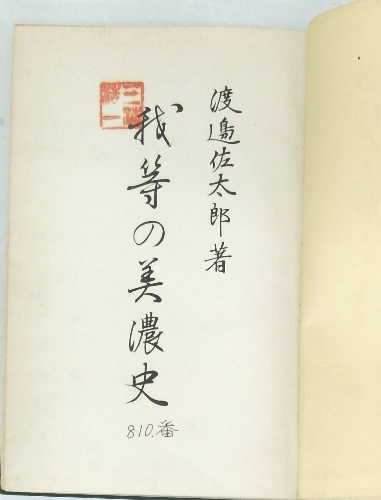 渡邉佐太郎著
我等の美濃史
810.番